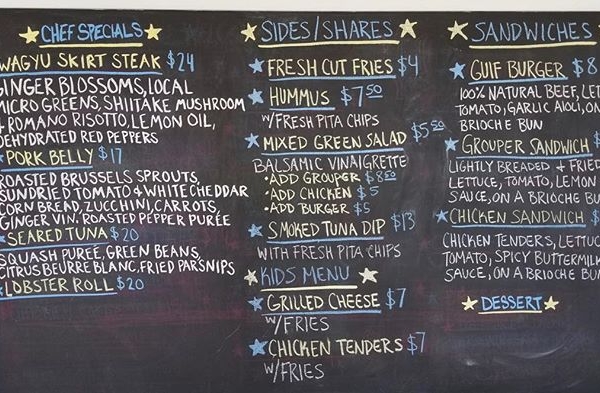 CHEF SPECIALS
WAGYU SKIRT STEAK $24
GINGER BLOSSOMS, LOCAL
MICRO GREENS, SHIITAKE MUSHROOM
+ ROMANO RISOTTO, LEMON OIL,
DEHYDRATED RED PEPPERS
PORK BELLY $17
ROASTED BRUSSELS SPROUTS,
SUNDRIED TOMATO & WHITE CHEDDAR
CORN BREAD, ZUCCHINI, CARROTS,
GINGER VIN. ROASTED PEPPER PURÉE
SEARED TUNA $20
SQUASH PURÉE, GREEN BEANS,
CITRUS BEURRE BLANC, FRIED PARSNIPS
LOBSTER ROLL $20
SIDES/SHARES
FRESH CUT FRIES $4
HUMMUS $7.50
W/FRESH PITA CHIPS
MIXED GREEN SALAD $5.50
BALSAMIC VINAIGRETTE
• ADD GROUPER $8.50
• ADD CHICKEN $5
• ADD BURGER $5
SMOKED TUNA DIP $13
WITH FRESH PITA CHIPS
KIDS MENU
GRILLED CHEESE $7
W/FRIES
CHICKEN TENDERS $7
W/FRIES
SANDWICHES
GULF BURGER $8
100% NATURAL BEEF, LET
TOMATO, GARLIC AIOLI, ON
BRIOCHE BUN
GROUPER SANDWICH $
LIGHTLY BREADED + FRIED
LETTUCE, TOMATO, LEMON
SAUCE, ON A BRIOCHE BU
CHICKEN SANDWICH $
CHICKEN TENDERS, LETTUC
TOMATO, SPICY BUTTERMILK
SAUCE, ON A BRIOCHE BUN
DESSERT